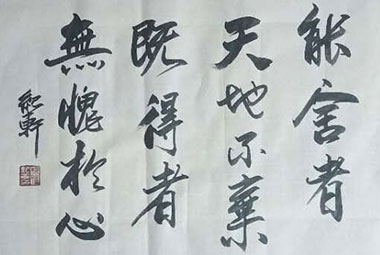 能舍者
天地不棄
既得者
無愧於心
紀軒